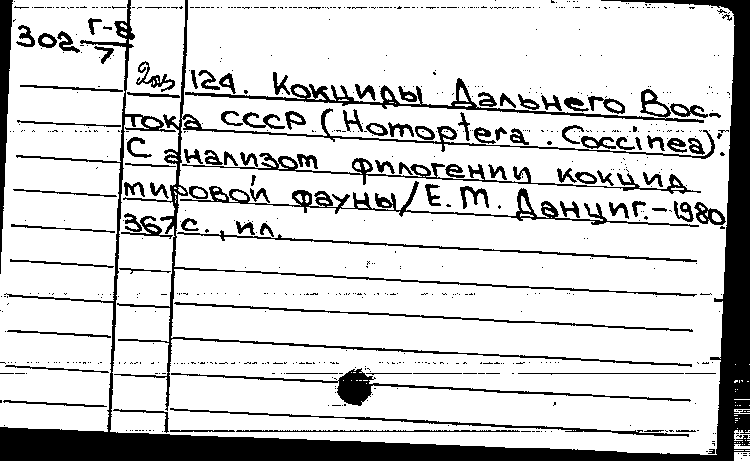 302 Г-8/7
2оэ 124. Кокциды Дальнего Вос-
тока СССР (Homoptera. Coccinea):
С анализом филогении кокцид
мировой фауны/Е.М. Данциг.-1980
367с., ил.